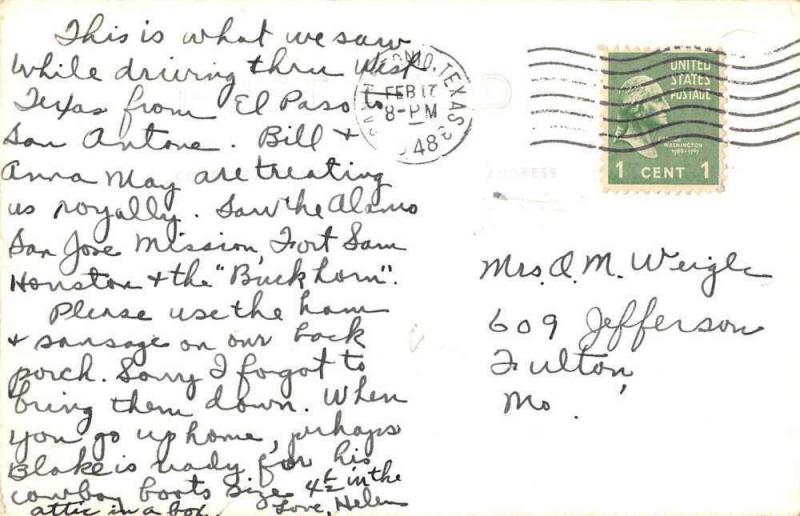 This is what we saw
while driving thru West
Texas from El Paso to
San Antone. Bill &
Anna May are treating
us royally. Saw the Alamo
San Jose Mission, Fort Sam
Houston & the "Buckhorn".
Please use the ham
& sausage on our back
porch. Sorry I fogot to
bring them down. When
you go up home, perhaps
Blake is ready for his
cowboy boots size 4½ in the
attic in a box.
Love, Helen
SAN ANTONIO, TEXAS
FEB 17
8-PM
1948
UNITED
STATES
POSTAGE
WASHINGTON
1789-1797
1 CENT 1
ADDRESS
Mrs. O. M. Weigle
609 Jefferson
Fulton,
Mo.